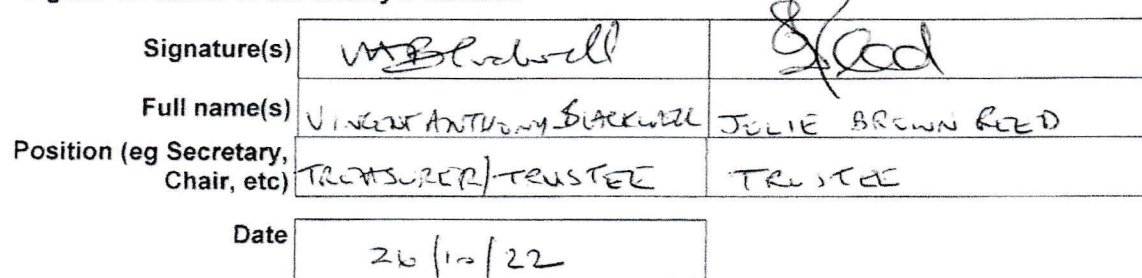 Signature(s)
Full name(s) VINCENT ANTHONY BLACKWELL JULIE BROWN REED
Position (eg Secretary,
Chair, etc) TREASURER/TRUSTEE TRUSTEE
Date 26/10/22